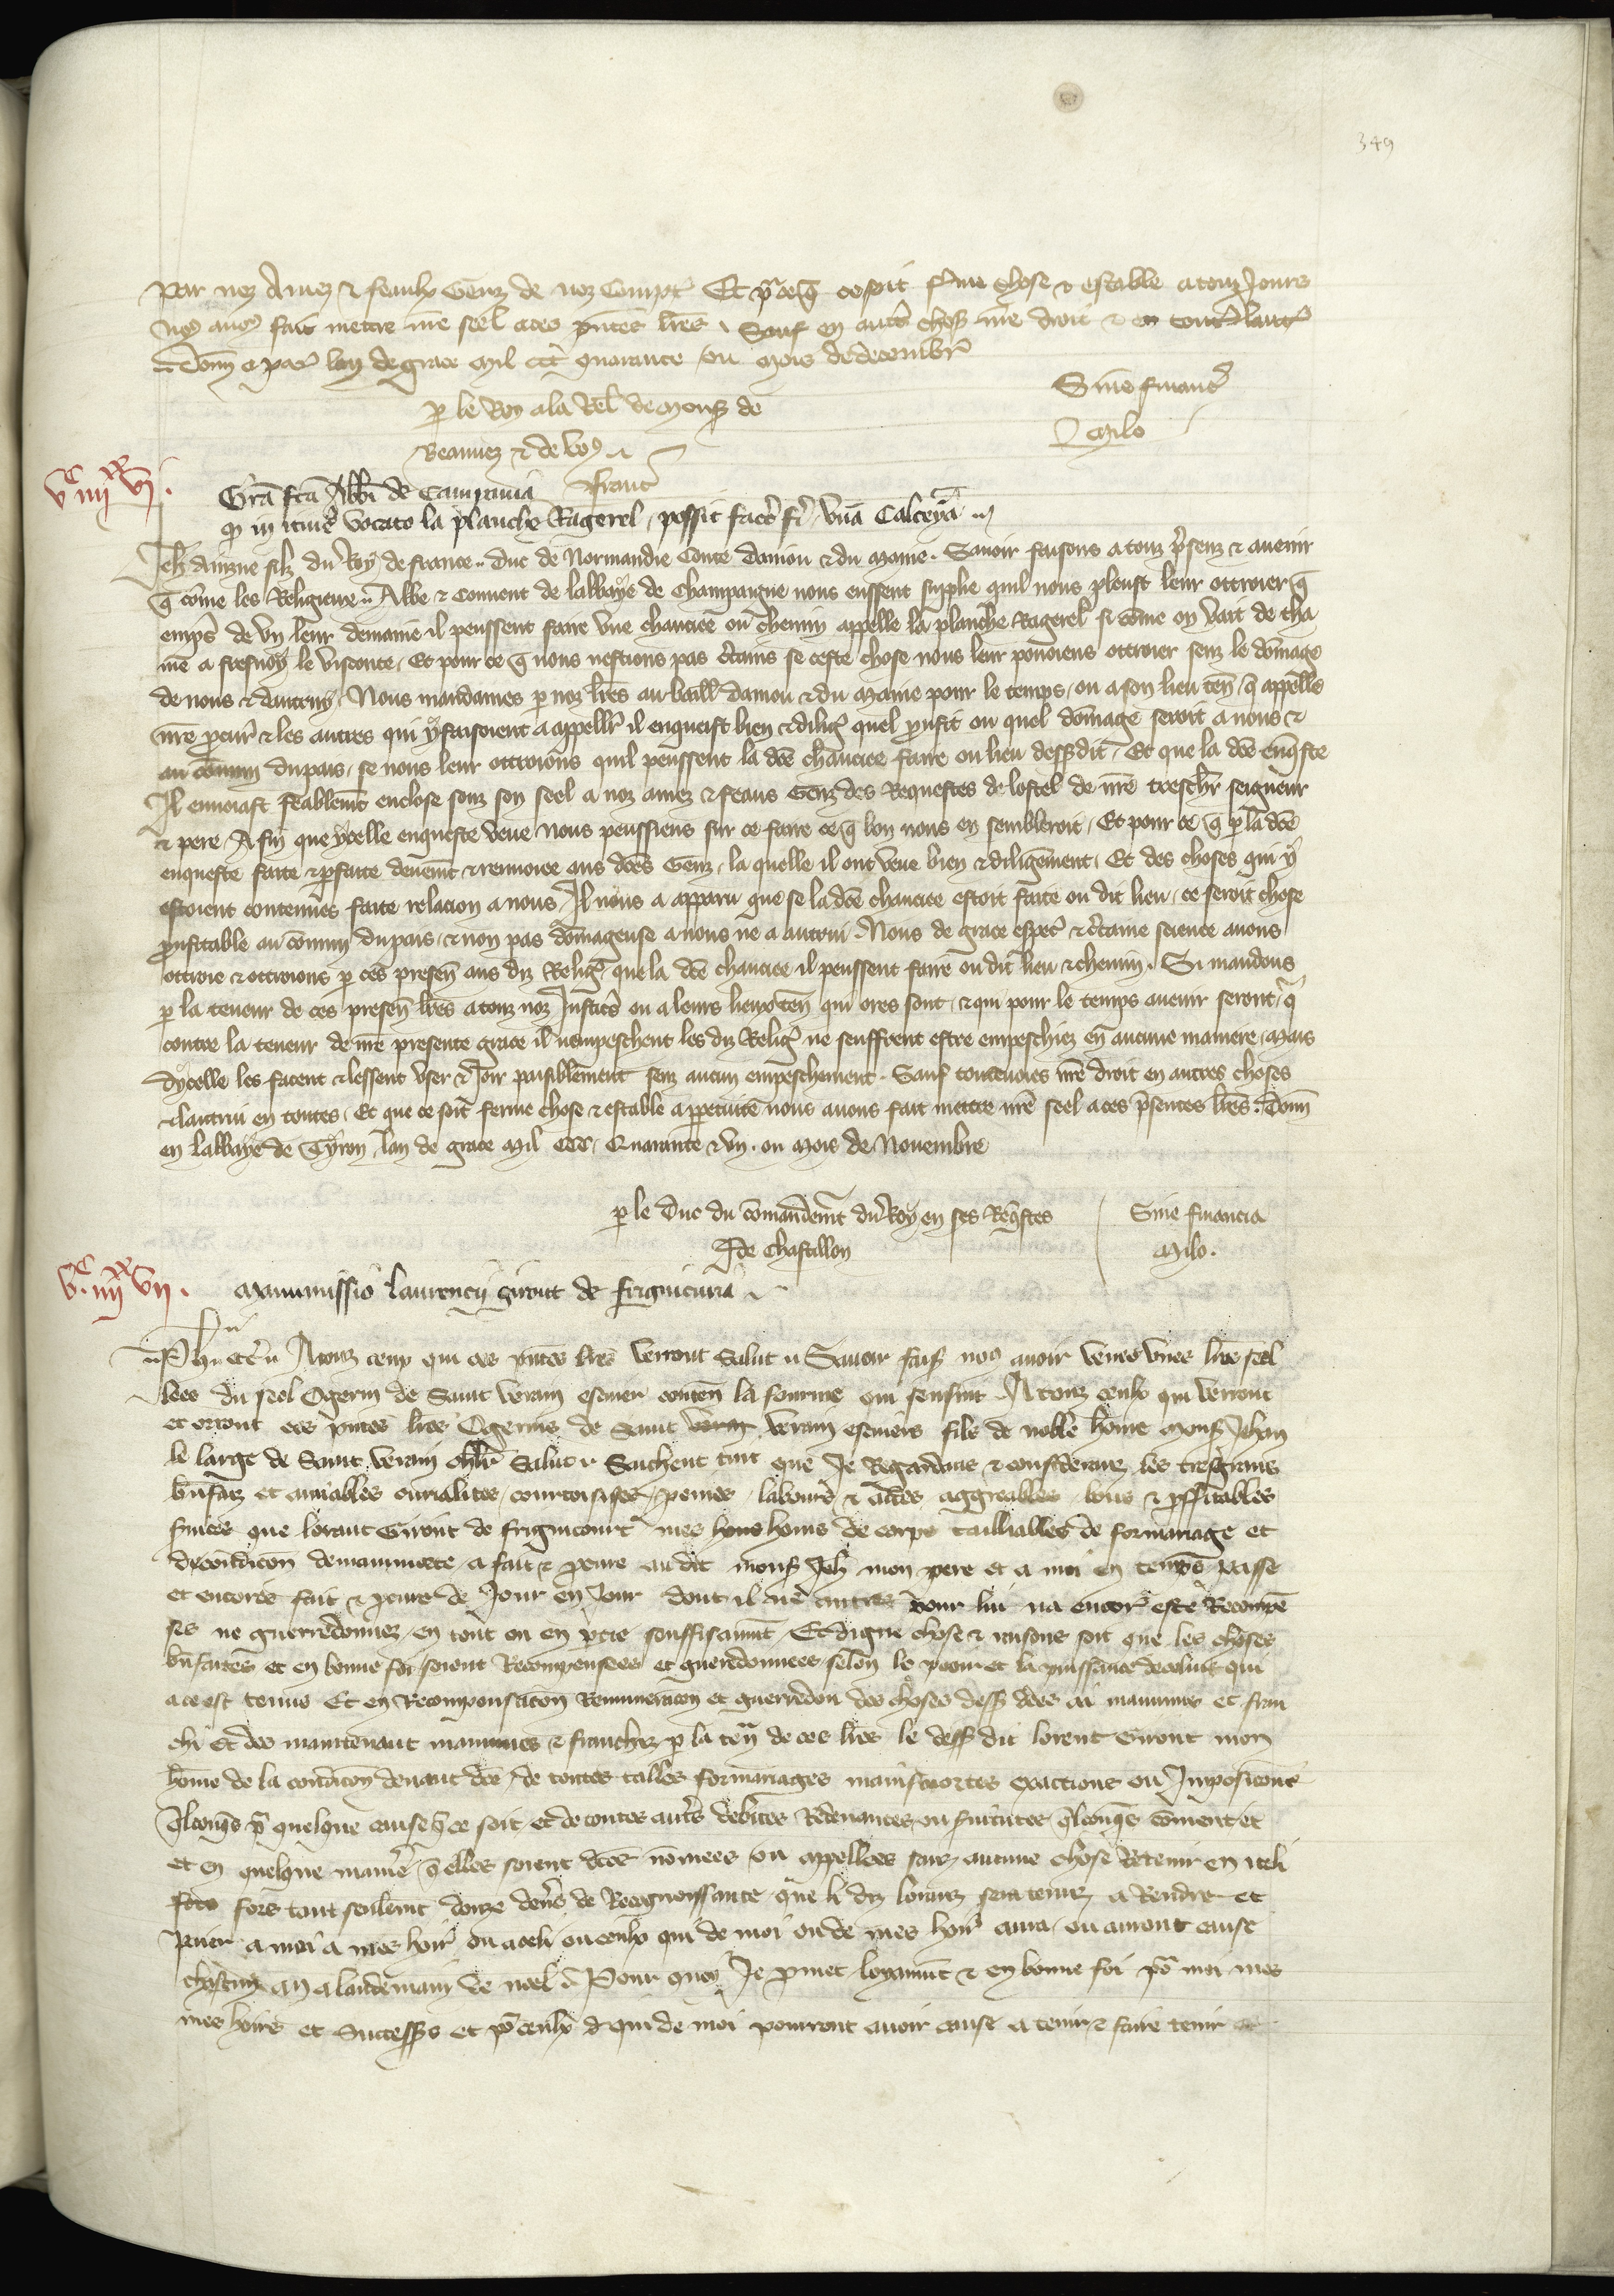 349
par nez Amez & feaulx Genz de noz Compt Et pr ce q ce soit ferme chose & estable a touz Jours
nos avos fait mettre nre seel a ces pntes lres Sauf en autres choses nre droit & en toutes lautr
Donn a par lan de grace Mil CCC quarante ou mois de decembre
p le Roy a la Rel de mons de
Beauvez & de vos
Sine financ
Milo
Franc
vc iiijxx vj.
Gra fca Abbi de Campania
q in itinere vocato la planche Ragerel, possit facere fi vna Calceya
Jeh ainzne filz du Roy de france. duc de Normandie Conte daniou & du Maine. Savoir faisons a touz presenz & avenir
q come les Religieux Abbe & Couvent de labbaye de Champaigne nous eussent supplie quil nous pleust leur ottroier q
emps de vn leur demaine il peussent faire vne chauciee ou chemin appelle la planche Ragerel si come on vait de cha
me a fresnoy le visconte, Et pour ce q nous nestions pas certains se ceste chose nous leur povoiens ottroier senz le domage
de nous & dautruy, Nous mandames p noz lres au baill daniou & du Maine pour le temps, ou a son lieu ten, q appelle
nre procur & les autres qui y faisoient a appeller il enqueist bien & dilig quel proufit ou quel domage seroit a nous &
au comun du pais, se nous leur ottroions quil peussent la dce chauciee faire ou lieu dessusdit, Et que la dce enqste
Il envoiast feablemt enclose souz son seel a noz amez & feaus Genz des Requestes de lostel de nre treschr seigneur
& pere, A fin que ycelle enqueste veue nous peussiens sur ce faire ce q bon nous en sembleroit, Et pour ce q p la dce
enqueste faite & parfaite deuemt & renvoiee aus dces Genz, la quelle il ont veue bien & diligemment, Et des choses qui y
estoient contenues faite relacion a nous, Il nous a apparu que se la dce chauciee estoit faite ou dit lieu, ce seroit chose
proufitable au comun du pais, & non pas domageuse a nous ne a autrui. Nous de grace espec & certaine science avons
ottroie & ottroions p ces presen aus diz Relig que la dce chauciee il peussent faire ou dit lieu & chemin. Si mandons
p la teneur de ces presen lres a touz noz Justic ou a leurs lieux ten qui ores sont, & qui pour le temps avenir seront, q
contre la teneur de nre presente grace il nempeschent les diz Relig ne seuffrent estre empeschiez en aucune maniere, Mais
dycelle les facent & lessent user & Joir paisiblement senz aucun empeschement. Sauf toutevoies nre droit en autres choses
& lautrui en toutes, Et que ce soit ferme chose & estable a ppetuite nous avons fait mettre nre seel a ces presentes lres. Donn
en labbaye de Tyron, lan de grace Mil CCC, Quarante & vn. ou Mois de Novembre
p le Duc du comandemt du Roy en ses Reqstes
De Chastillon
Sine financia
Milo.
vc. iiijxx vij.
Manumissio laurencij Giront de frignicuria
Ph etc A touz ceux qui ces pntes lres verront Salut Savoir fais nos avoir veues vnes lres seel
lees du seel Ogerin de Saint verain escuier conten la fourme qui sensuit A touz ceulx qui verront
et orront ces pntes lres Ogerins de Saint verain verain escuiers filz de noble home Mons Jehan
le large de Saint verain chlr Salut Sachent tuit que Je Regardans & considerans les tresgrans
bnfaiz et amiables curialites, courtoisises, peines, labours & actes aggreables bons & pffitables
services que lorant Giront de frignicourt mes hons homs de corps taillables de formariage et
de condicon de mainmorte, a fait & pourre au dit mons Jeh mon pere et a moi en temps passe
et encores fait & peure de Jour en Jour dont il ne autres pour lui na encor este Recompe
ses ne guerredonnez en tout ou en ptie souffisammt, Et digne chose & raisons soit que les choses
bn faites et en bonne foi soient Recompensees et guerredonnees selon le pooir et la puissance de celui qui
a ce est tenus Et en Recompensacon Remuneracon et guerredon des choses dess dces ai manumis et fran
chi Et des maintenant manumes & franchez p la ten de ces lres le dess dit lorent Giront mon
home de la condicon devant dce, de toutes tailles formariages mainsmortes exactions ou Imposicons
qlconqs p quelque cause q ce soit, et de toutes autres debites Redevances ou servitutes qlconqs coment et
et en quelque maniere q elles soient dces nomees ou appellees sanz aucune chose Retenir en iceli
fors tant seulemt douze deniers de Recognoissance que li diz lorenz sera tenuz a Rendre et
paier a moi a mes hoirs ou a celi ou ceulx qui de moi ou de mes hoirs aura ou auront cause
chascun an a landemain de noel Pour quoy Je pmet loyaumt & en bonne foi por moi mes
mes hoirs et successeurs et por ceulx d qui de moi pourront avoir cause a tenir & faire tenir et